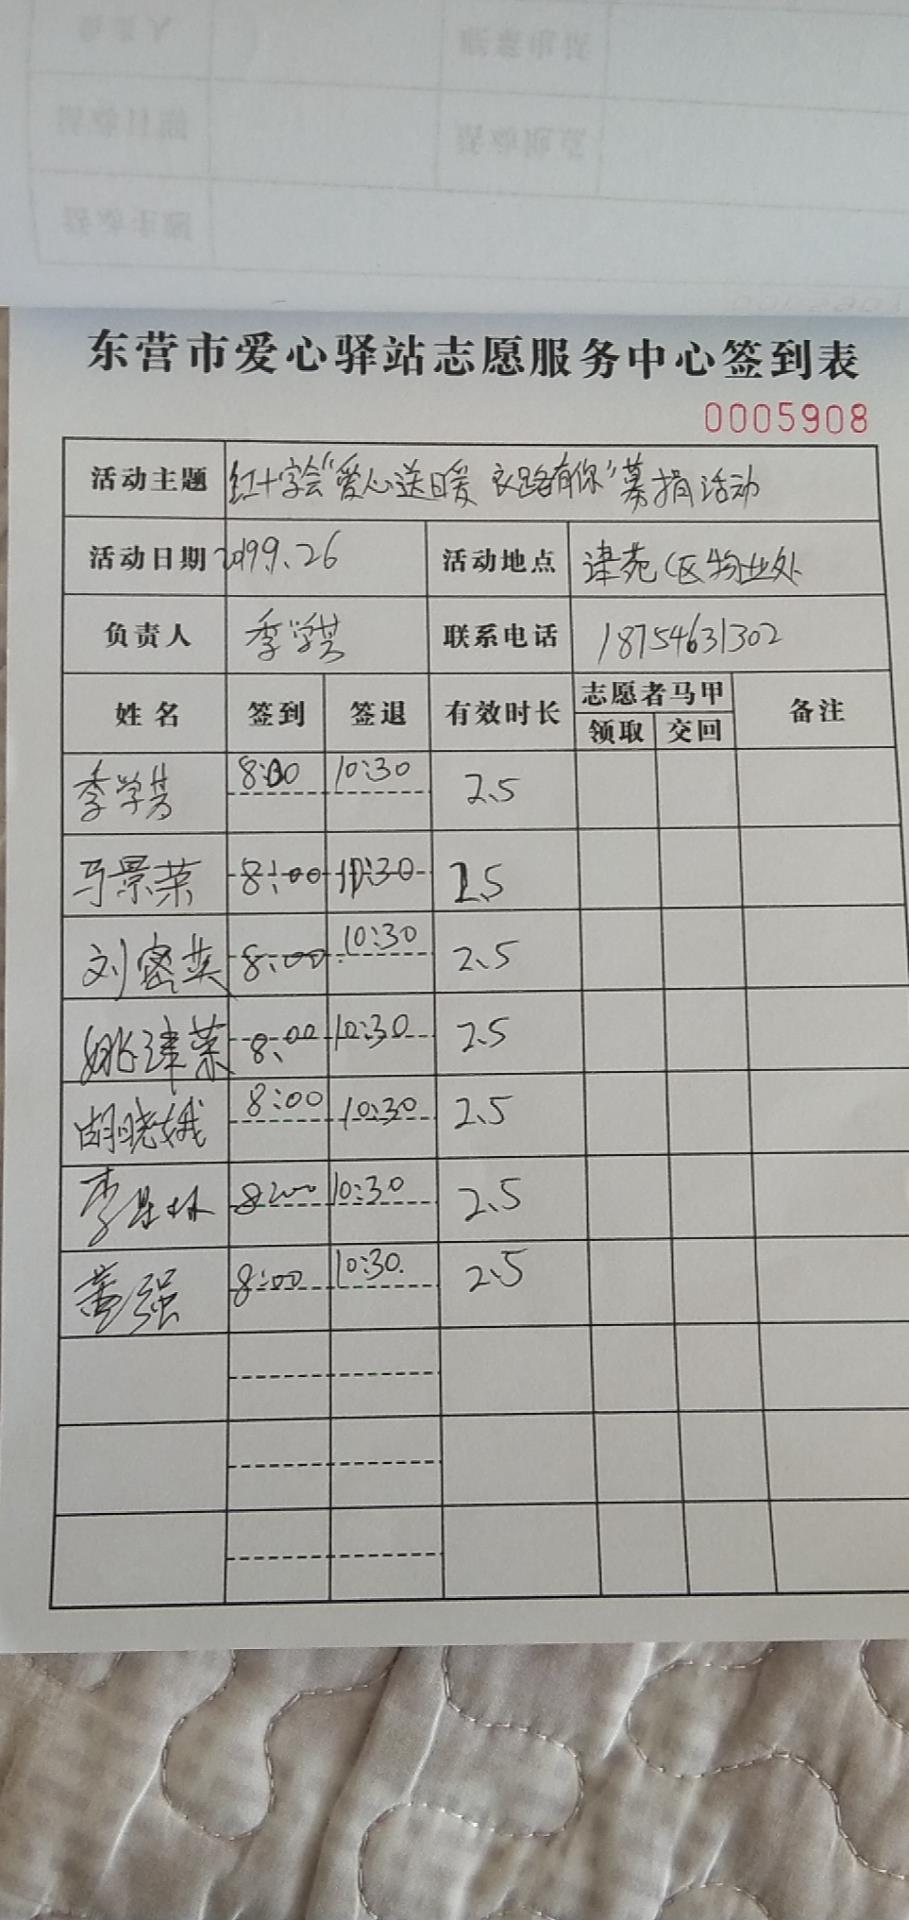 东营市爱心驿站志愿服务中心签到表
0005908
活动主题 红十字会“爱心送暖 衣路有你”募捐活动
活动日期 2019.9.26 活动地点 津苑C区物业处
负责人 季学其 联系电话 18754631302
姓名 签到 签退 有效时长 志愿者马甲 领取 交回 备注
季学其 8:00 10:30 2.5
马景荣 8:00 10:30 2.5
刘密英 8:00 10:30 2.5
姚津荣 8:00 10:30 2.5
胡晓娥 8:00 10:30 2.5
李 林 8:00 10:30 2.5
董强 8:00 10:30. 2.5